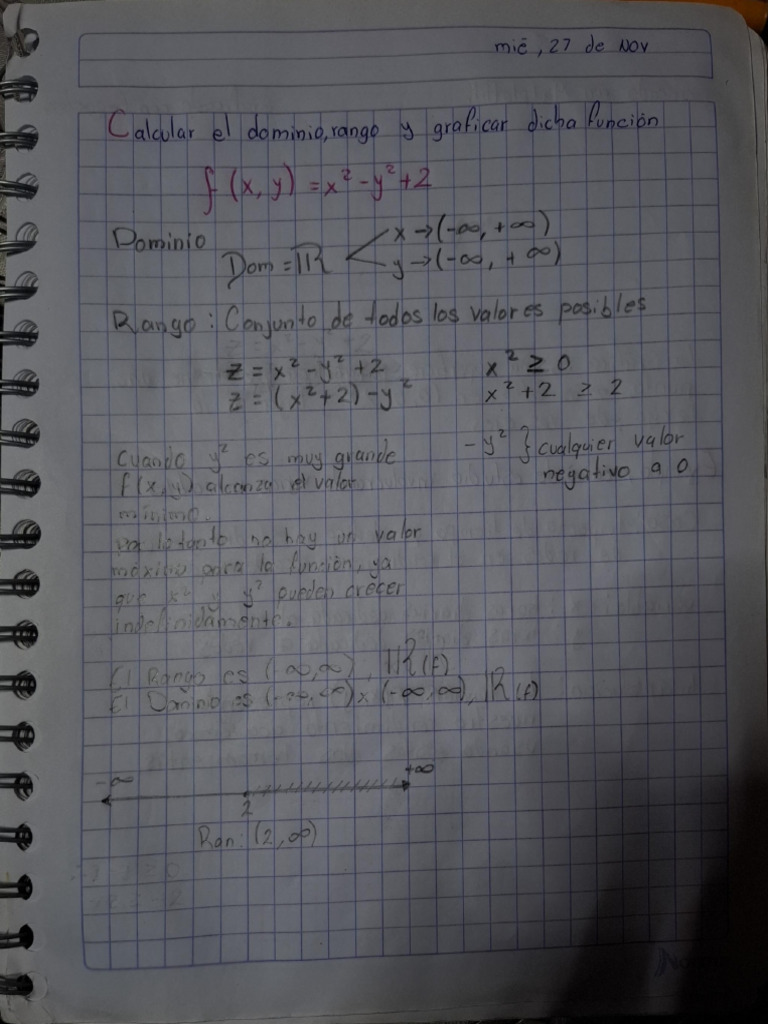 mié, 27 de Nov
Calcular el dominio, rango y graficar dicha función
f (x, y) = x² - y² + 2
Dominio
Dom = ℝ
x → (-∞, +∞)
y → (-∞, +∞)
Rango : Conjunto de todos los valores posibles
z = x² - y² + 2
z = (x² + 2) - y²
x² ≥ 0
x² + 2 ≥ 2
- y² } cualquier valor
negativo a 0
Cuando y² es muy grande
f(x, y) alcanza el valor
mínimo.
por lo tanto no hay un valor
máximo para la función, ya
que x² y y² pueden crecer
indefinidamente.
El Rango es (-∞,∞), ℝ(f)
El Dominio es (-∞,∞) x (-∞,∞), ℝ(f)
-∞ +∞
2
Ran: (2, ∞)